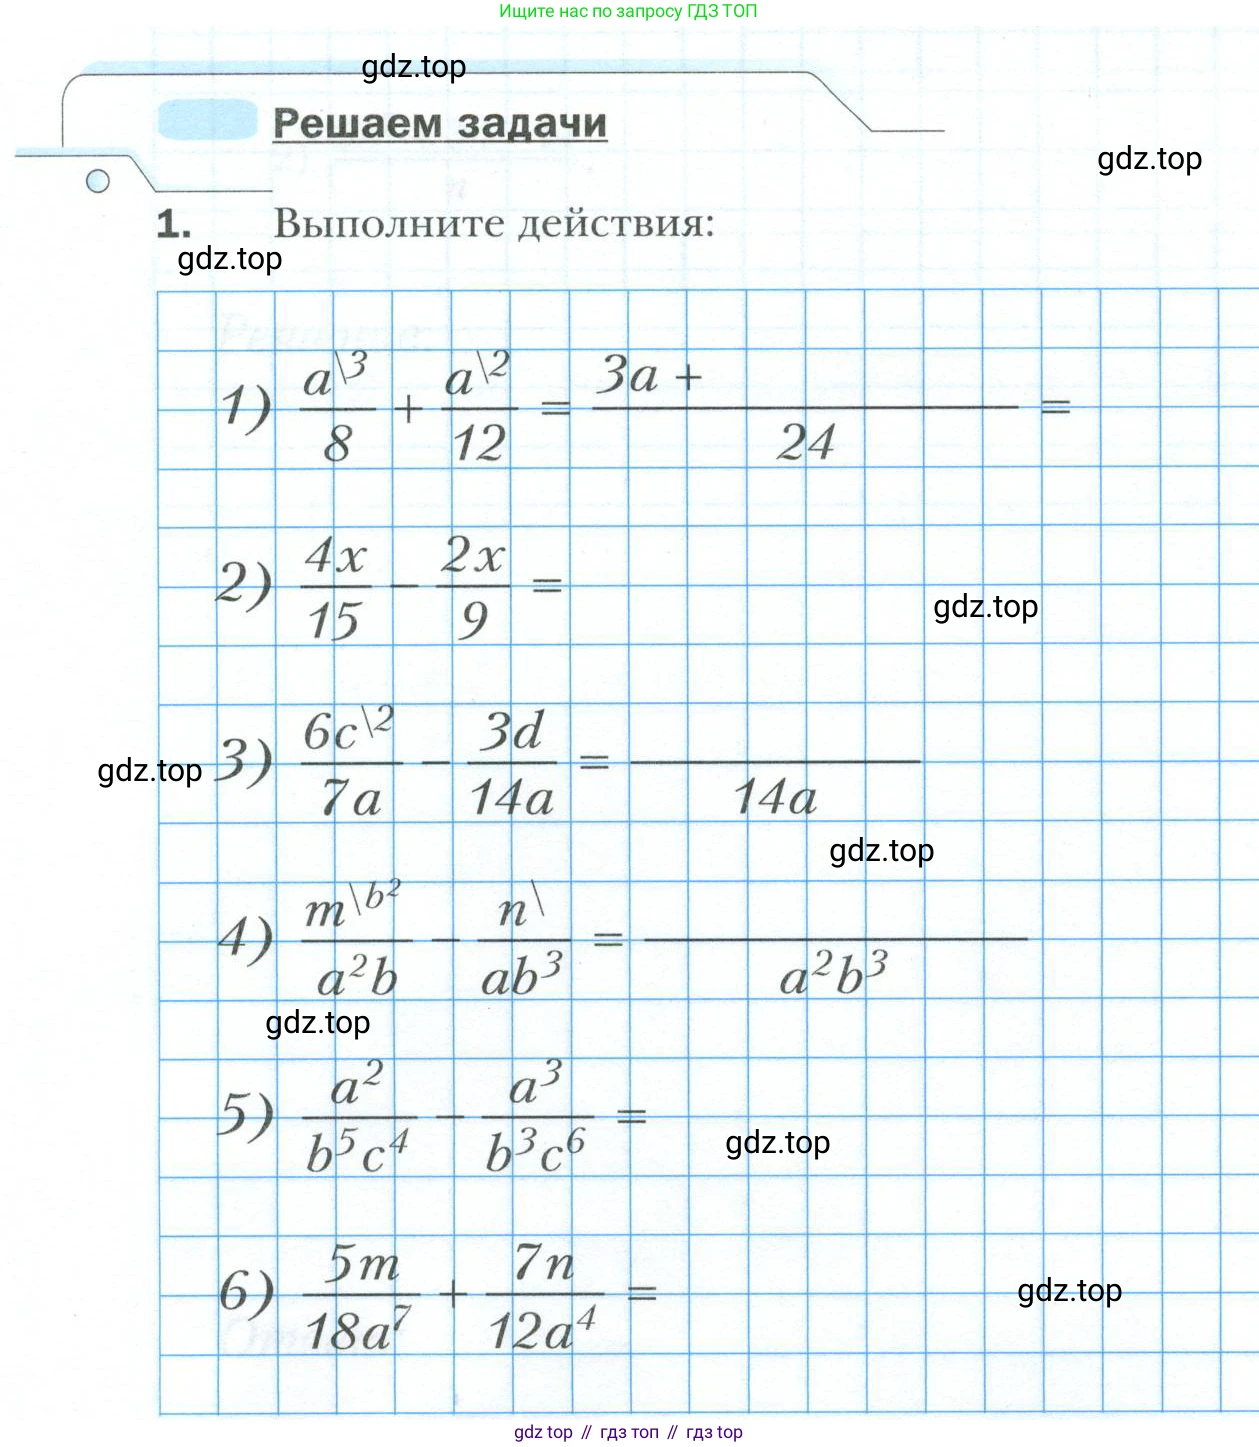 Ищите нас по запросу ГДЗ ТОП
gdz.top
Решаем задачи
gdz.top
1. Выполните действия:
gdz.top
1) a\3/8 + a\2/12 = 3a + /24 =
2) 4x/15 − 2x/9 =
gdz.top
gdz.top
3) 6c\2/7a − 3d/14a = /14a
gdz.top
4) m\b²/a²b − n\/ab³ = /a²b³
gdz.top
5) a²/b⁵c⁴ − a³/b³c⁶ =
gdz.top
6) 5m/18a⁷ + 7n/12a⁴ =
gdz.top
gdz top // гдз топ // гдз top